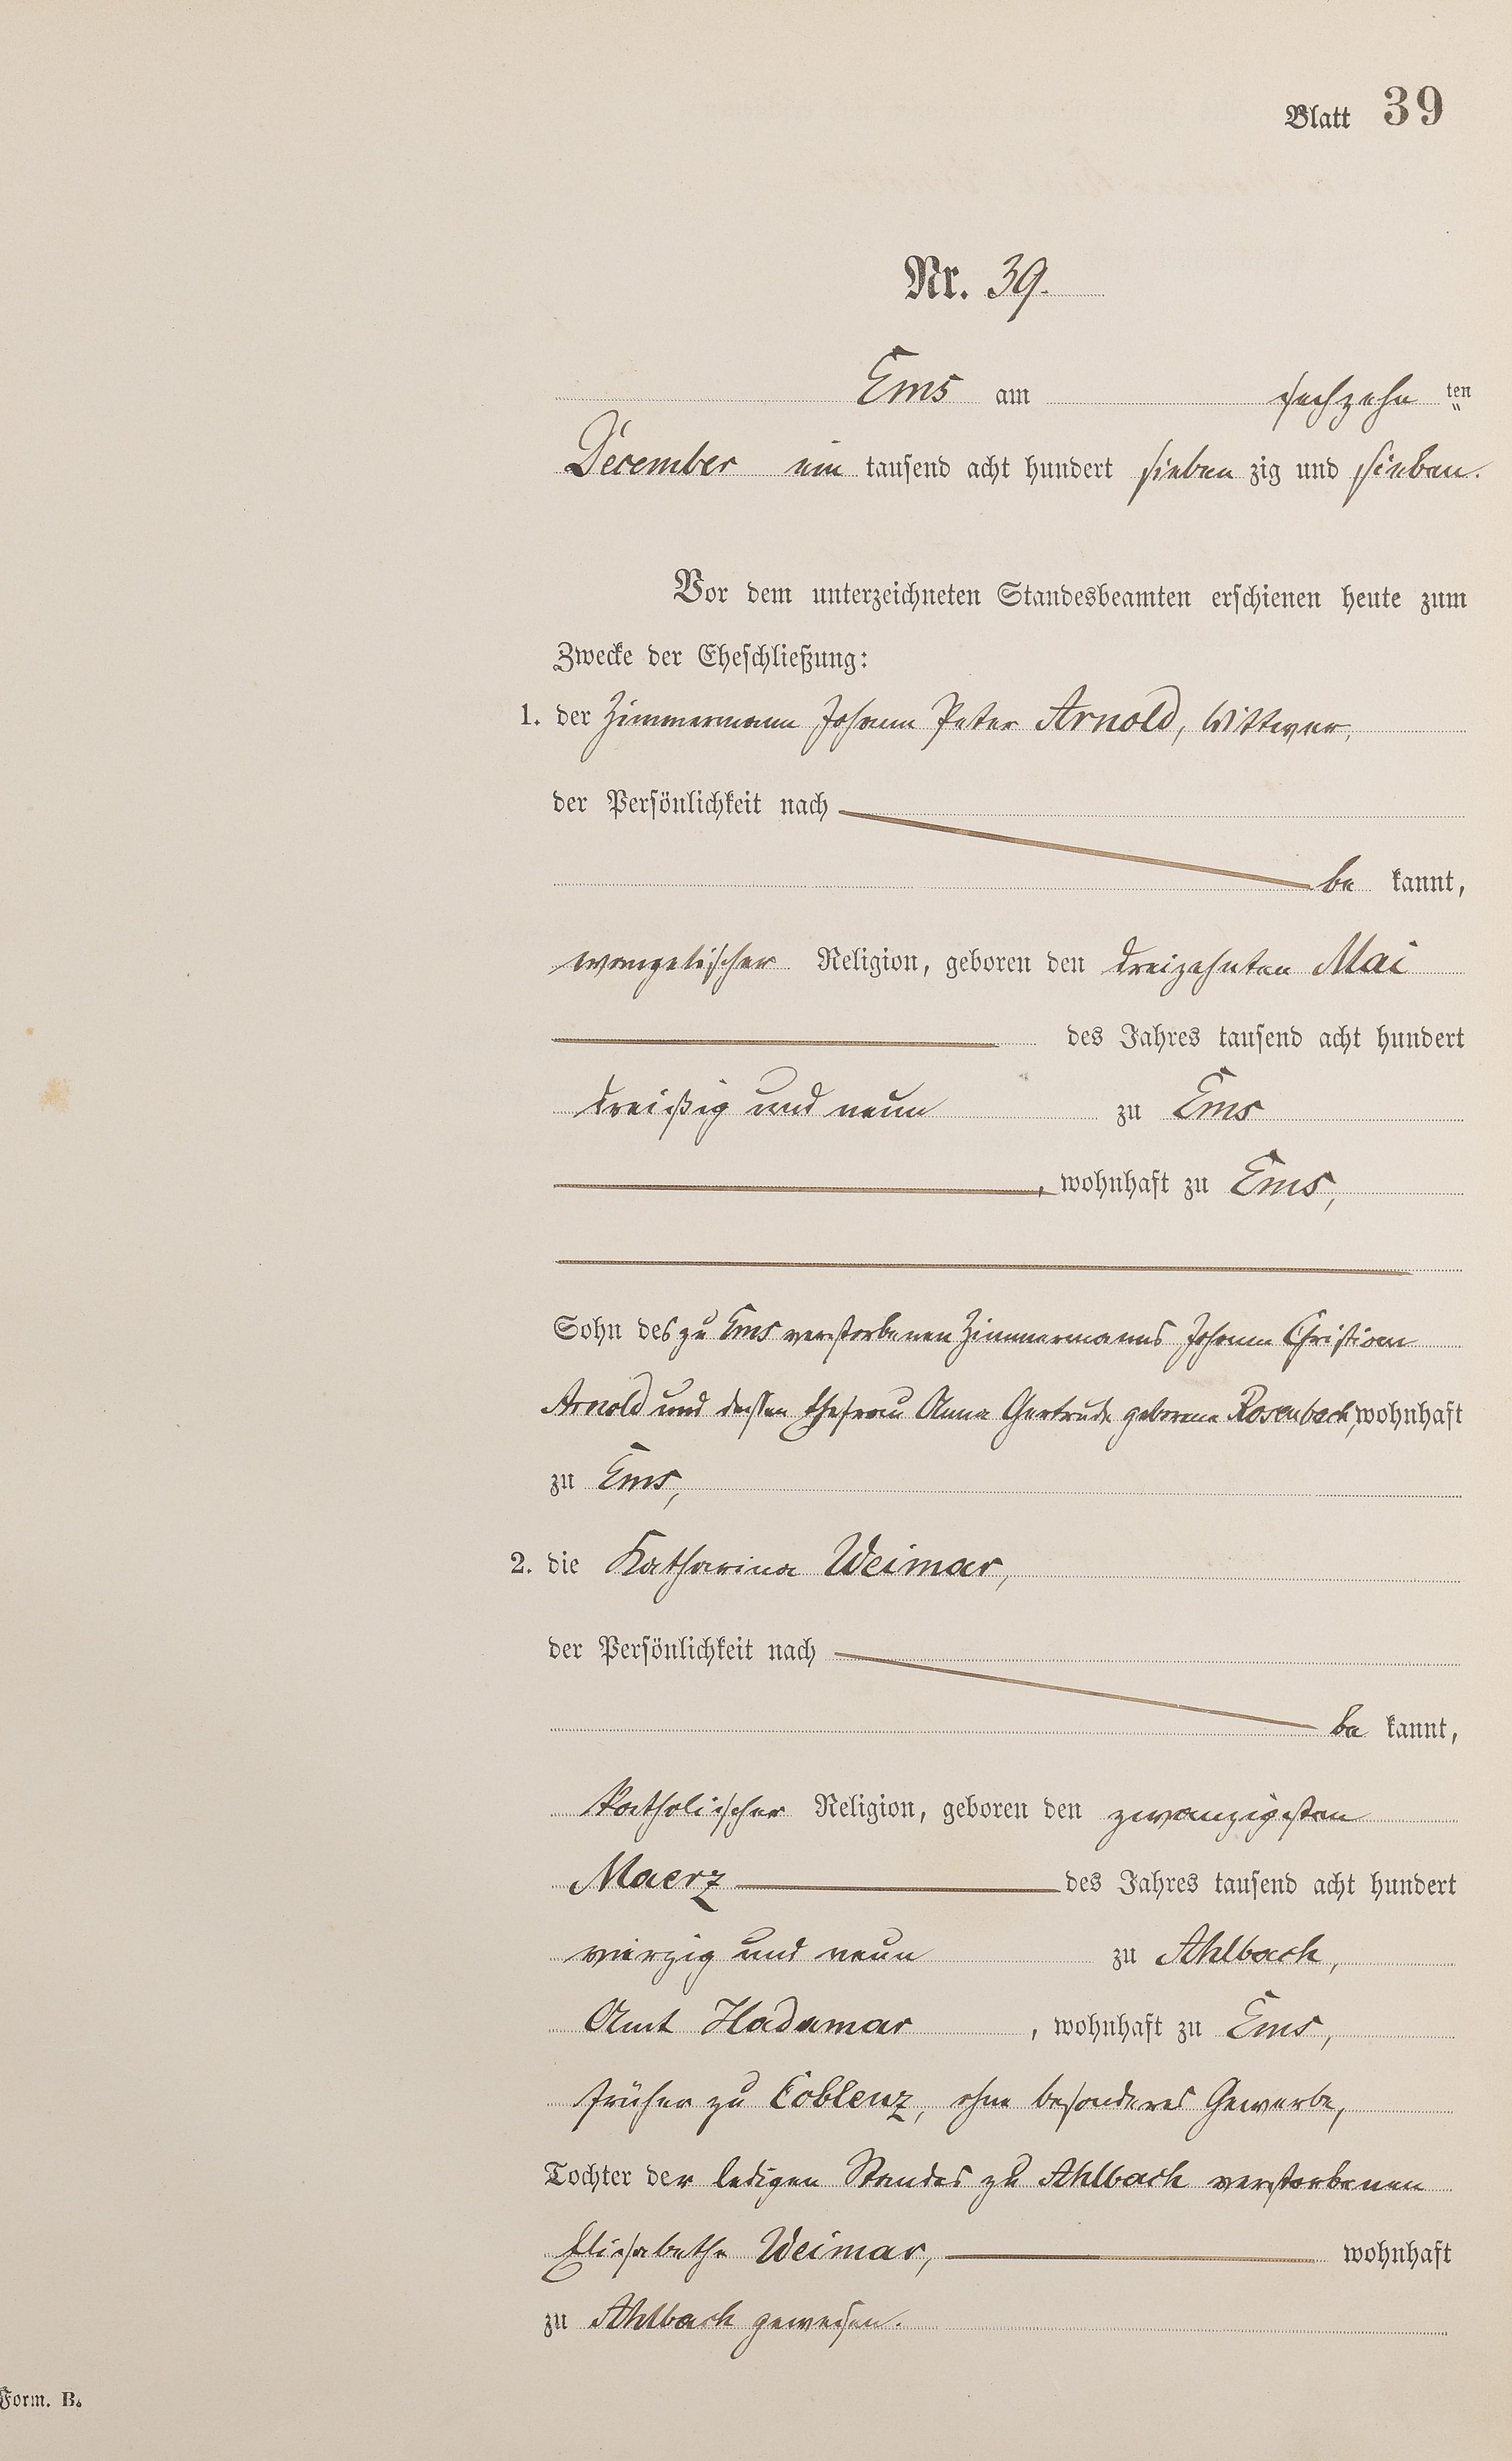 Blatt 39
Nr. 39.
Ems am sechzehn ten
"
December ein tausend acht hundert sieben zig und sieben.
Vor dem unterzeichneten Standesbeamten erschienen heute zum
Zwecke der Eheschließung:
1. der Zimmermann Johann Peter Arnold, Wittwer,
der Persönlichkeit nach
be kannt,
evangelischer Religion, geboren den dreizehnten Mai
des Jahres tausend acht hundert
dreißig und neun zu Ems
, wohnhaft zu Ems,
Sohn des zu Ems verstorbenen Zimmermanns Johann Christian
Arnold und dessen Ehefrau Anna Gertrude geborene Rosenbach, wohnhaft
zu Ems,
2. die Katharina Weimar,
der Persönlichkeit nach
be kannt,
katholischer Religion, geboren den zwanzigsten
Maerz des Jahres tausend acht hundert
vierzig und neun zu Ahlbach,
Amt Hadamar , wohnhaft zu Ems,
früher zu Coblenz, ohne besonderes Gewerbe,
Tochter der ledigen Standes zu Ahlbach verstorbenen
Elisabethe Weimar, wohnhaft
zu Ahlbach gewesen.
Form. B.